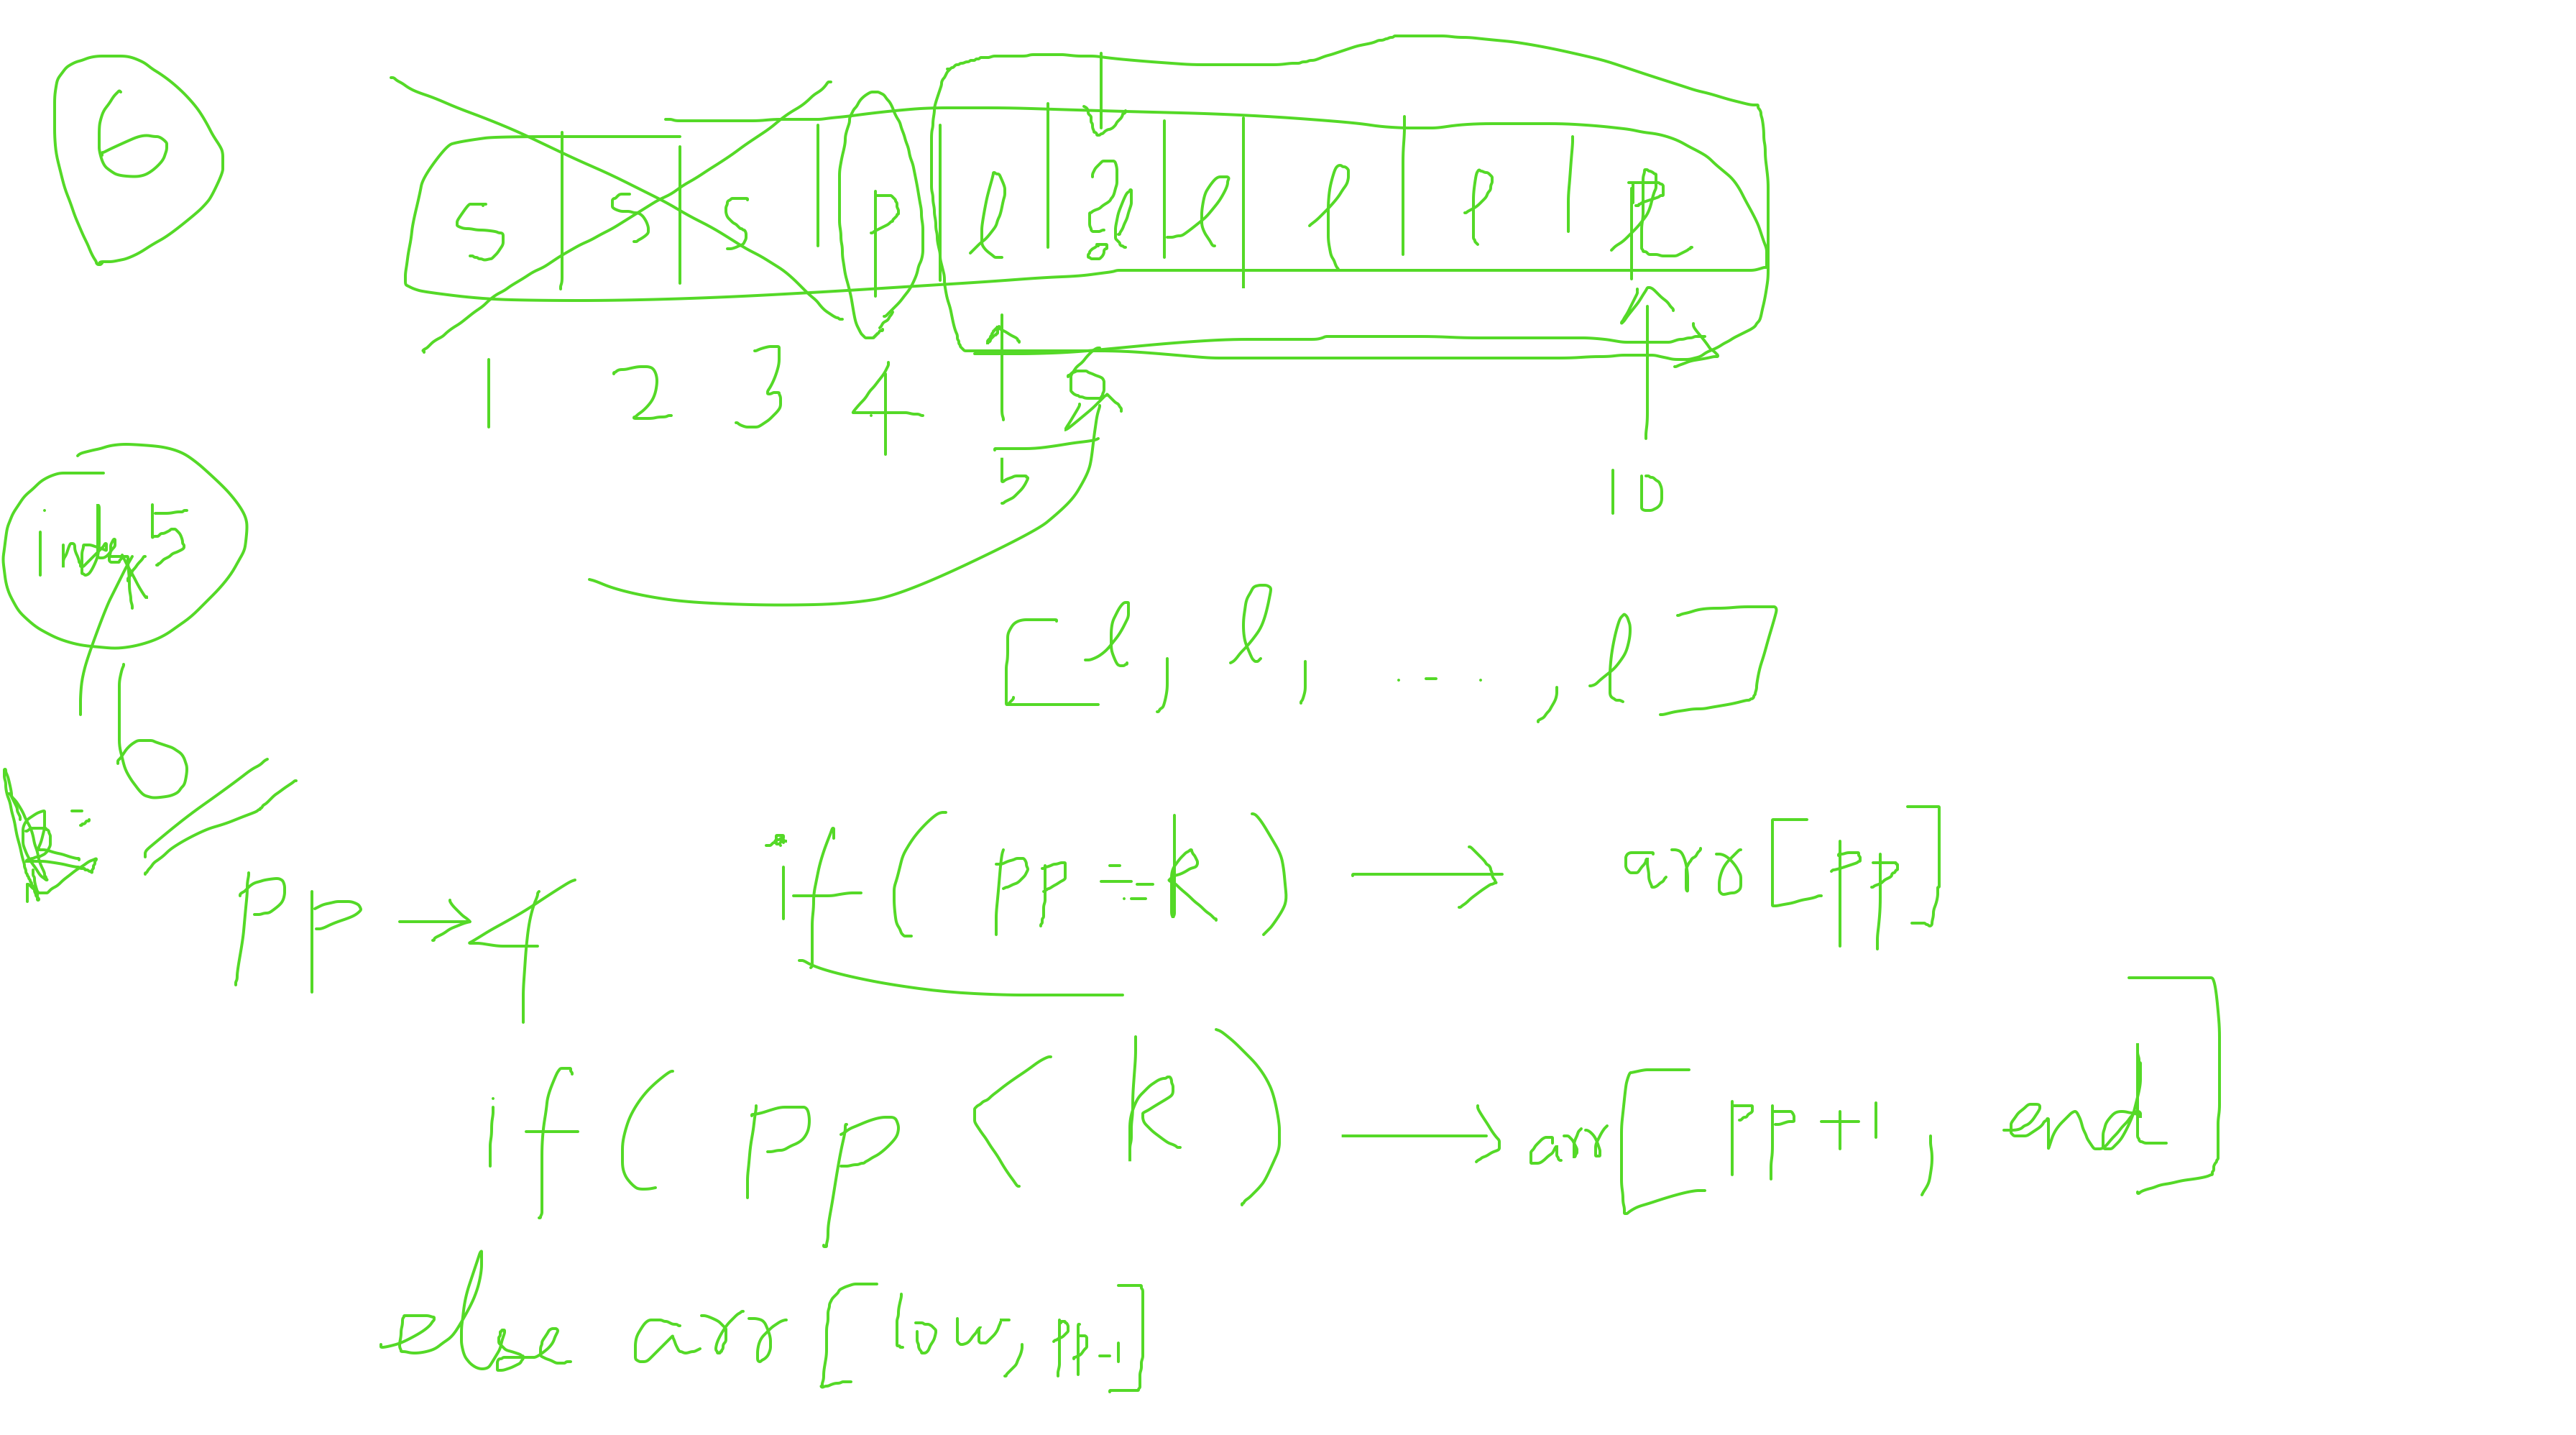 6
s s s p l l l l l
1 2 3 4 5 10
index 5
6
[l, l, ..., l]
pp → 4
if ( pp == k ) → arr [pp]
if ( pp < k ) → arr [ pp+1, end ]
else arr [low, pp-1]